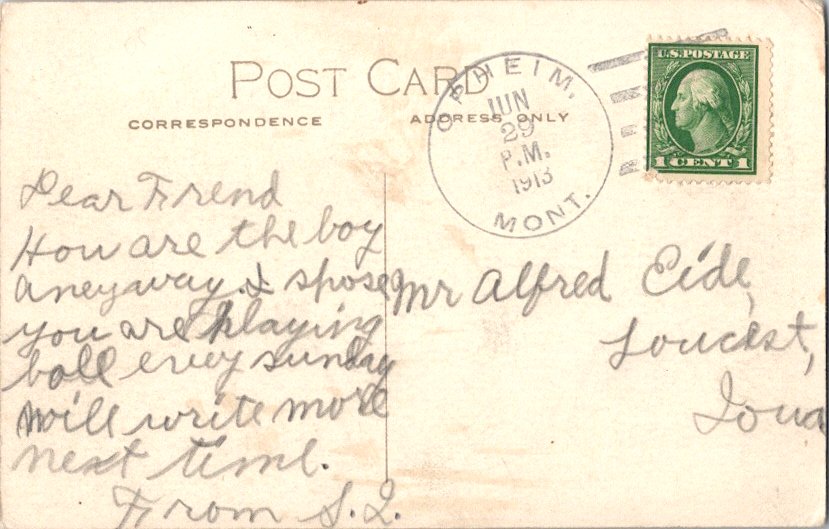 POST CARD
CORRESPONDENCE
ADDRESS ONLY
OPHEIM,
JUN
29
P.M.
1913
MONT.
U.S. POSTAGE
1 CENT 1
Dear Frend
How are the boy
aneyway. I spose
you are playing
boll evey sunday
will write more
next time.
From S. L.
Mr Alfred Eide,
Loucst,
Iowa